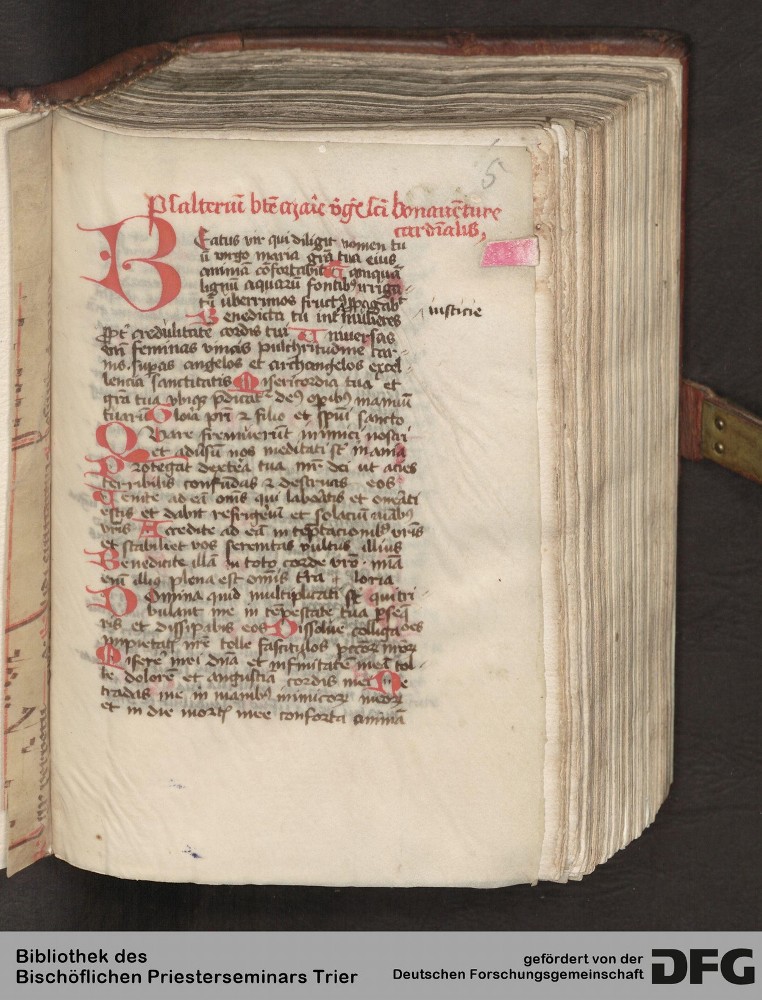 5
Psalteriu͞ bt͞e m͞aie v͞gi͞s sc͞i bonaue͞ture
cardi͞alis,
Beatus vir qui diligit nomen tu
u͞ virgo maria gr͞a tua eius
anima͞ co͞fortabit Ta͞mqua͞
lignu͞ aquaru͞ fontibꝰ irriga
tu͞ uberrimos fructꝰ p͞pagabt
iusticie
Benedicta tu int͞ mulieres
ꝓpt͞ credulitate͞ cordis tui Vniuersas
eni͞ feminas vincis pulchritudine car-
nis. supas angelos et archangelos excel-
lencia sanctitatis Misericordia tua et
gr͞a tua vbiqꝫ p͞dicat͞ deꝰ op͞ibꝰ manuu͞
tuaru͞ Gloia pri͞ ⁊ filio et sp͞ui sancto
Quare fremueru͞t inimici nostri
et adusu͞ nos meditati st͞ inania
Protegat dextera tua m͞r dei ut acies
terribilis confu͞das ⁊ destruas eos
Venite ad ea͞ om͞s qui laboratis et on͞eati
estis et dabit refrigeriu͞ et solaciu͞ aı͞abꝰ
v͞ris Accedite ad ea͞ in te͞ptacionibꝰ v͞ris
et stabiliet vos serenitas vultus illius
Benedicite illa͞ in toto corde v͞ro · mi͞a
eni͞ illiꝰ plena est om͞is t͞ra Gloria
Domina quid multiplicati st͞ qui tri-
bulant me in te͞pestate tua p͞seq
ris et dissipabis eos Dissolue colligac͞oes
impietatꝭ m͞re tolle fasciculos p͞ccorꝫ meorꝫ
Miserere mei d͞na et infirmitate͞ mea͞ tol-
le dolore͞ et angustia͞ cordis mei Ne
tradas me in manibꝰ inimicorꝫ meorꝫ
et in die mortꝭ mee conforta anima͞
Bibliothek des
Bischöflichen Priesterseminars Trier
gefördert von der
Deutschen Forschungsgemeinschaft
DFG